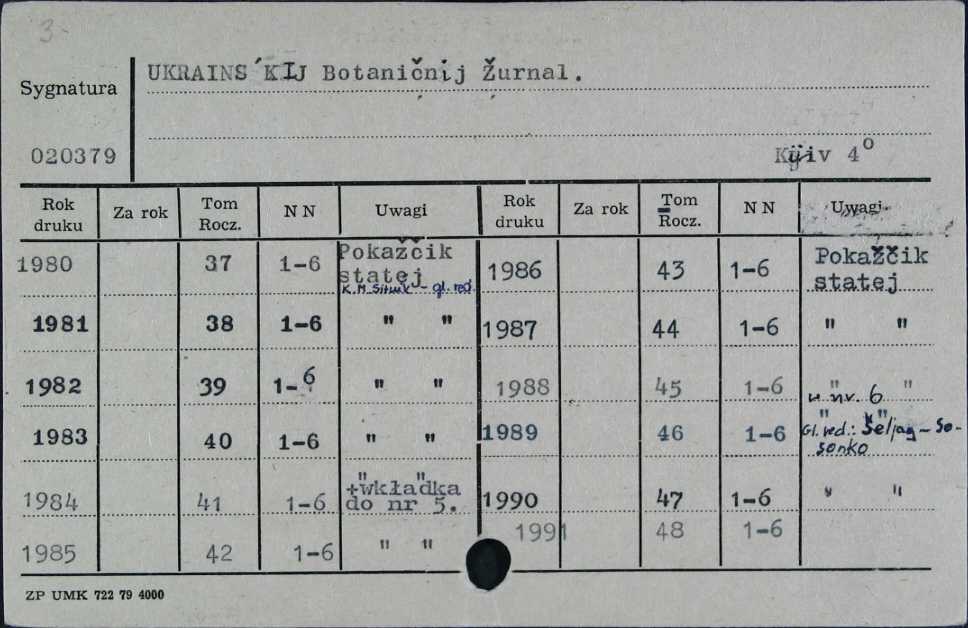 3-
UKRAINS´KIJ Botaničnij Žurnal.
Sygnatura
020379
Kyjiv 4°
Rok druku Za rok Tom Rocz. NN Uwagi Rok druku Za rok Tom Rocz. NN Uwagi
1980 37 1-6 Pokažčik statej 1986 43 1-6 Pokažčik statej
K. M. Sitnik - gł. red.
1981 38 1-6 " " 1987 44 1-6 " "
1982 39 1-6 " " 1988 45 1-6 " "
w nr. 6
1983 40 1-6 " " 1989 46 1-6 " "
Gł. red.: Šeljag-So-
sonko
1984 41 1-6 " " 1990 47 1-6 " "
+wkładka
do nr 5.
1991 48 1-6
1985 42 1-6 " "
ZP UMK 722 79 4000